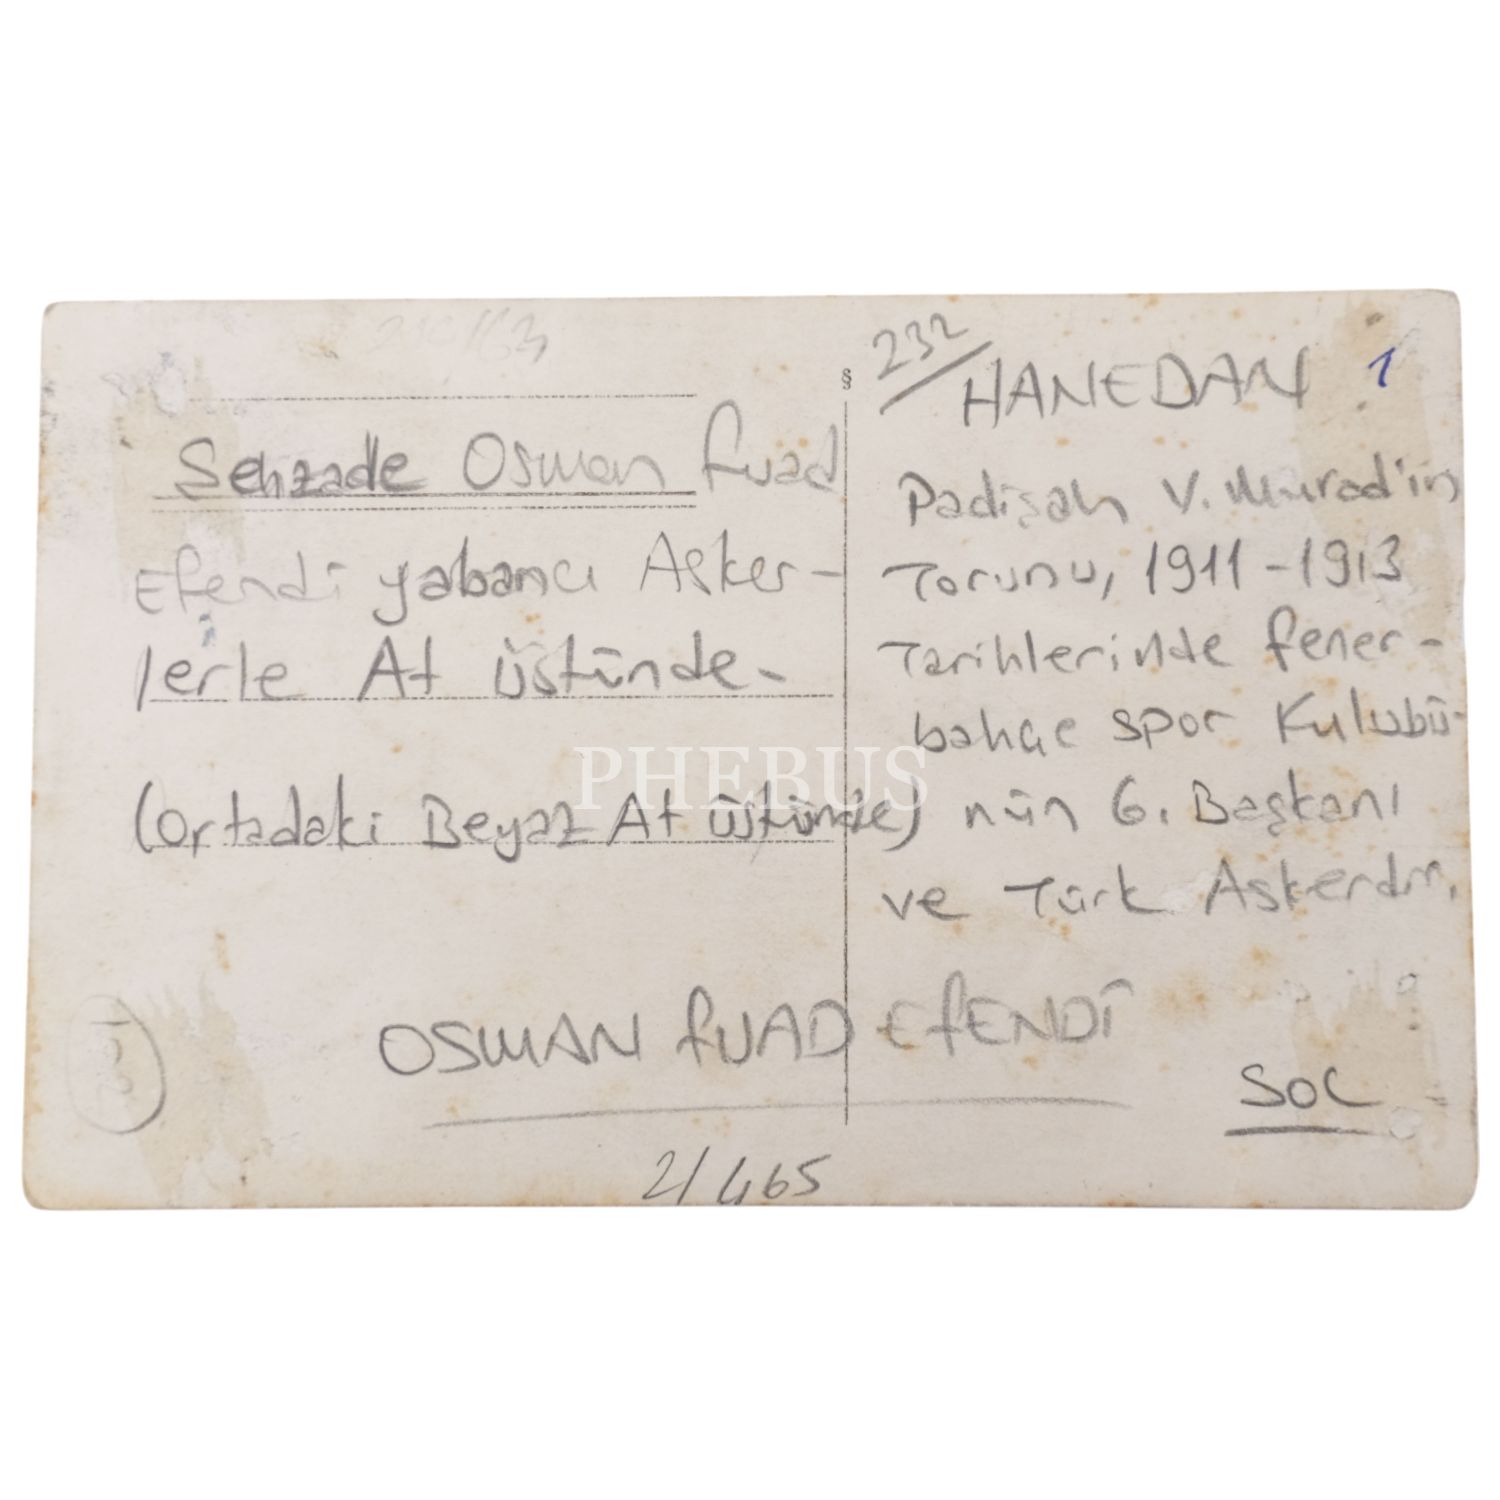 Sehzade Osman Fuad
Efendi yabancı Asker-
lerle At üstünde-
(Ortadaki Beyaz At üstünde)
232/
HANEDAN 1
Padişah V. Murad'ın
Torunu, 1911-1913
Tarihlerinde fener-
bahçe spor Kulubü-
nün 6. Başkanı
ve Türk Askerdir,
OSMAN FUAD EFENDİ
SOC
2/465
PHEBUS